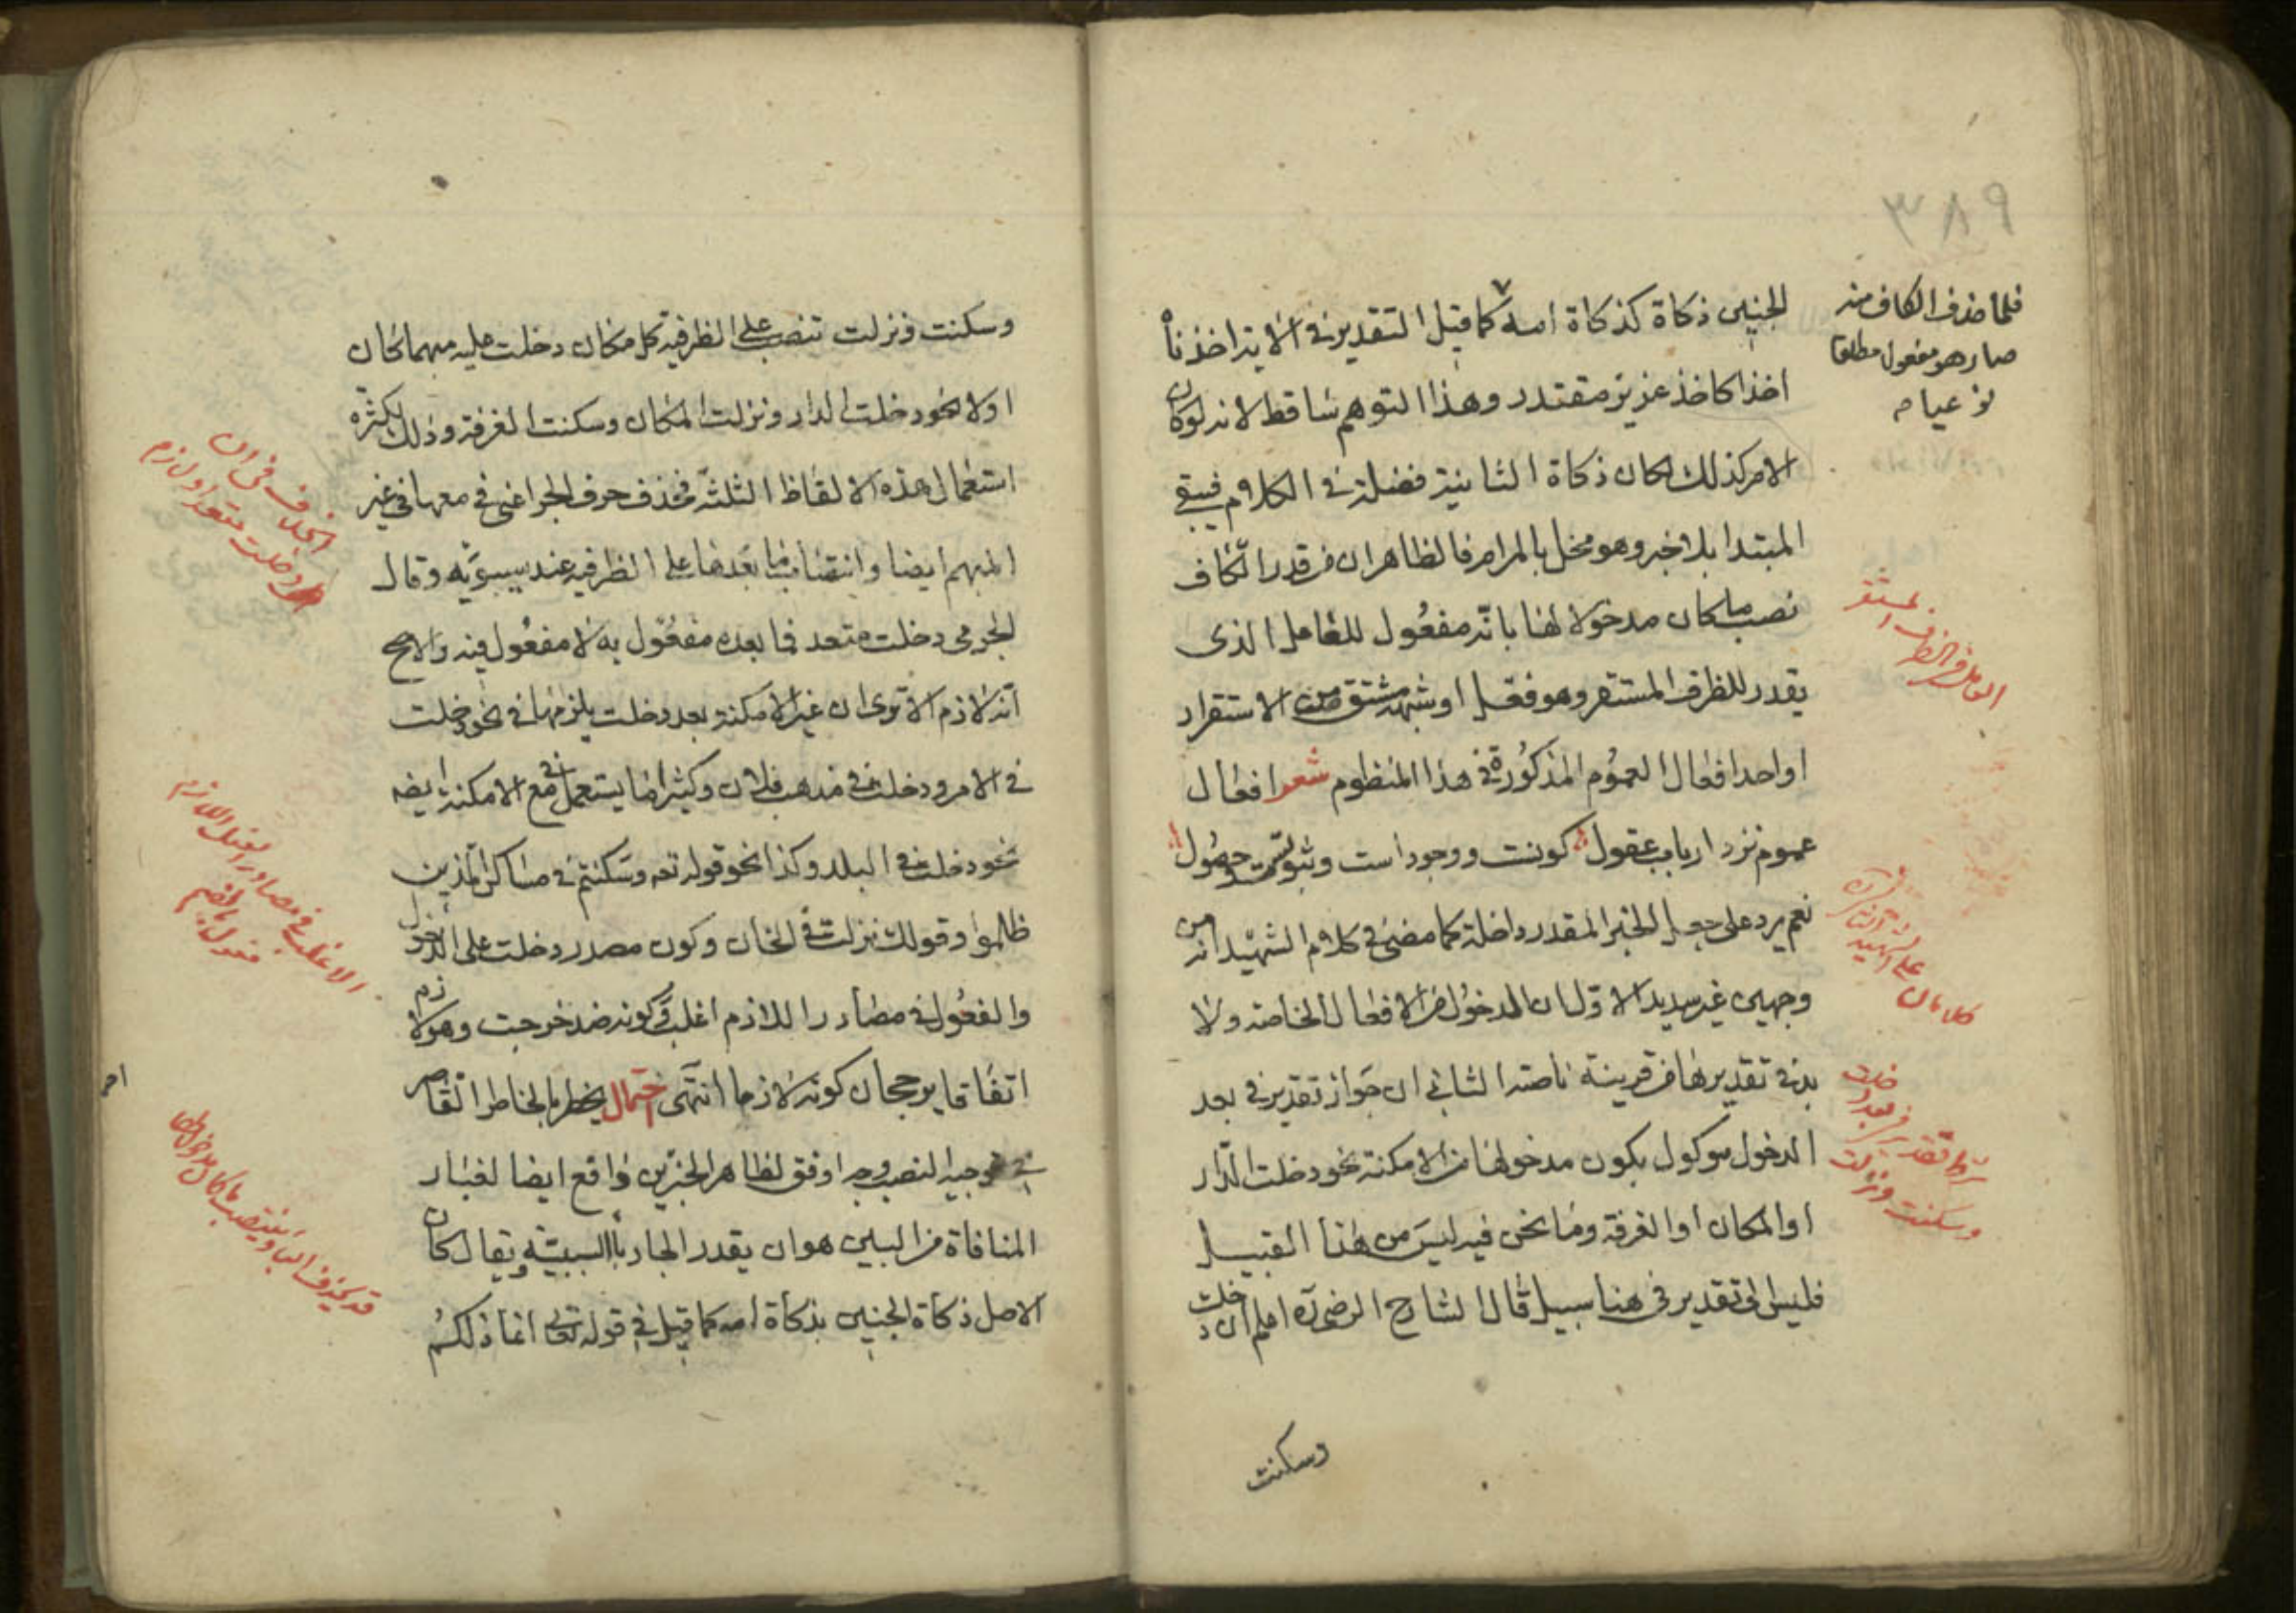 ٣٨٩
فلما حذف الكاف منه
صار هو مفعول مطلقا
نوعيا م
الجنين ذكاة كذكاة امه كما قيل التقدير فى الاية اخذناه
اخذا كاخذ عزيز مقتدر وهذا التوهم ساقط لانه لو كان
الامر كذلك لكان ذكاة الثانية فضلة فى الكلام فيبقى
المبتدا بلا خبر وهو مخل بالمرام فالظاهر ان من قدر الكاف
نصب ما كان مدخولا لها بانّه مفعُول للعامل الذى
يقدر للظرف المستقر وهو فعل او شبهه مشتق من الاستقرار
او احد افعال العمُوم المذكُورة فى هذا المنظوم شعر افعال
عموم نزد ارباب عقول كونست ووجود است وثبوتست وحصُول
نعم يرد على جعل الخبر المقدر داخلة كما مضى فى كلام الشهيد انه من
وجهين غير سديد الاوّل ان الدخُول من الافعال الخاصة ولا
بد فى تقديرها من قرينة ناصة الثانى ان جواز تقدير فى بعد
الدخول موكول بكون مدخولها من الامكنة نحو دخلت الدّار
او المكان او الغرفة وما نحن فيه ليسَ من هذا القبيل
فليس الى تقدير فى هنا سبيل قال الشارح الرضى ره اعلم ان دخلت
وسكنت
العامل فى الظرف المستقر
كلامان على الشهيد الثانى
شرط تقدير فى بعد دخلت
وسكنت ونزلت
وسكنت ونزلت تنصب على الظرفية كل مكان دخلت عليه مبهما كان
او لا نحو دخلت الدار ونزلت المكان وسكنت الغرفة وذلك لكثرة
استعمال هذه الالفاظ الثلثة فحذف حرف الجر اعنى فى معها فى غير
المبهم ايضا وانتصاب ما بعدها على الظرفية عند سيبويّه وقال
الجرمى دخلت متعد فما بعده مفعُول به لا مفعُول فيه والاصح
انّه لازم الا ترى ان غير الامكنة بعد دخلت يلزمها فى نحو دخلت
فى الامر ودخلت فى مذهب فلان وكثيرا ما يستعمل فى مع الامكنة ايضه
نحو دخلت فى البلد وكذا نحو قوله تعه وسَكنتم فى مساكن الّذين
ظلموا وقولك نزلت فى الخان وكون مصدر دخلت على الدخول
والفعُول فى مصادر اللازم اغلب وكونه ضد خرجت وهو لازم
اتفاقا يرجحان كونه لازما انتهى احتمال يخطر بالخاطر القاصر
فى توجيه النصب وجه اوفق لظاهر الخبرين واقع ايضا لغبار
المنافاة من البين هو ان يقدر الجار باالسببيّة ويقال كان
الاصل ذكاة الجنين بذكاة امه كما قيل فى قوله تعالى انما ذلكُم
الخلاف فى ان
دخلت متعد او لازم
الاغلب فى مصادر الفعل اللازم
فعول بالضم
قد يحذف الباء وينتصب ما كان مدخولها